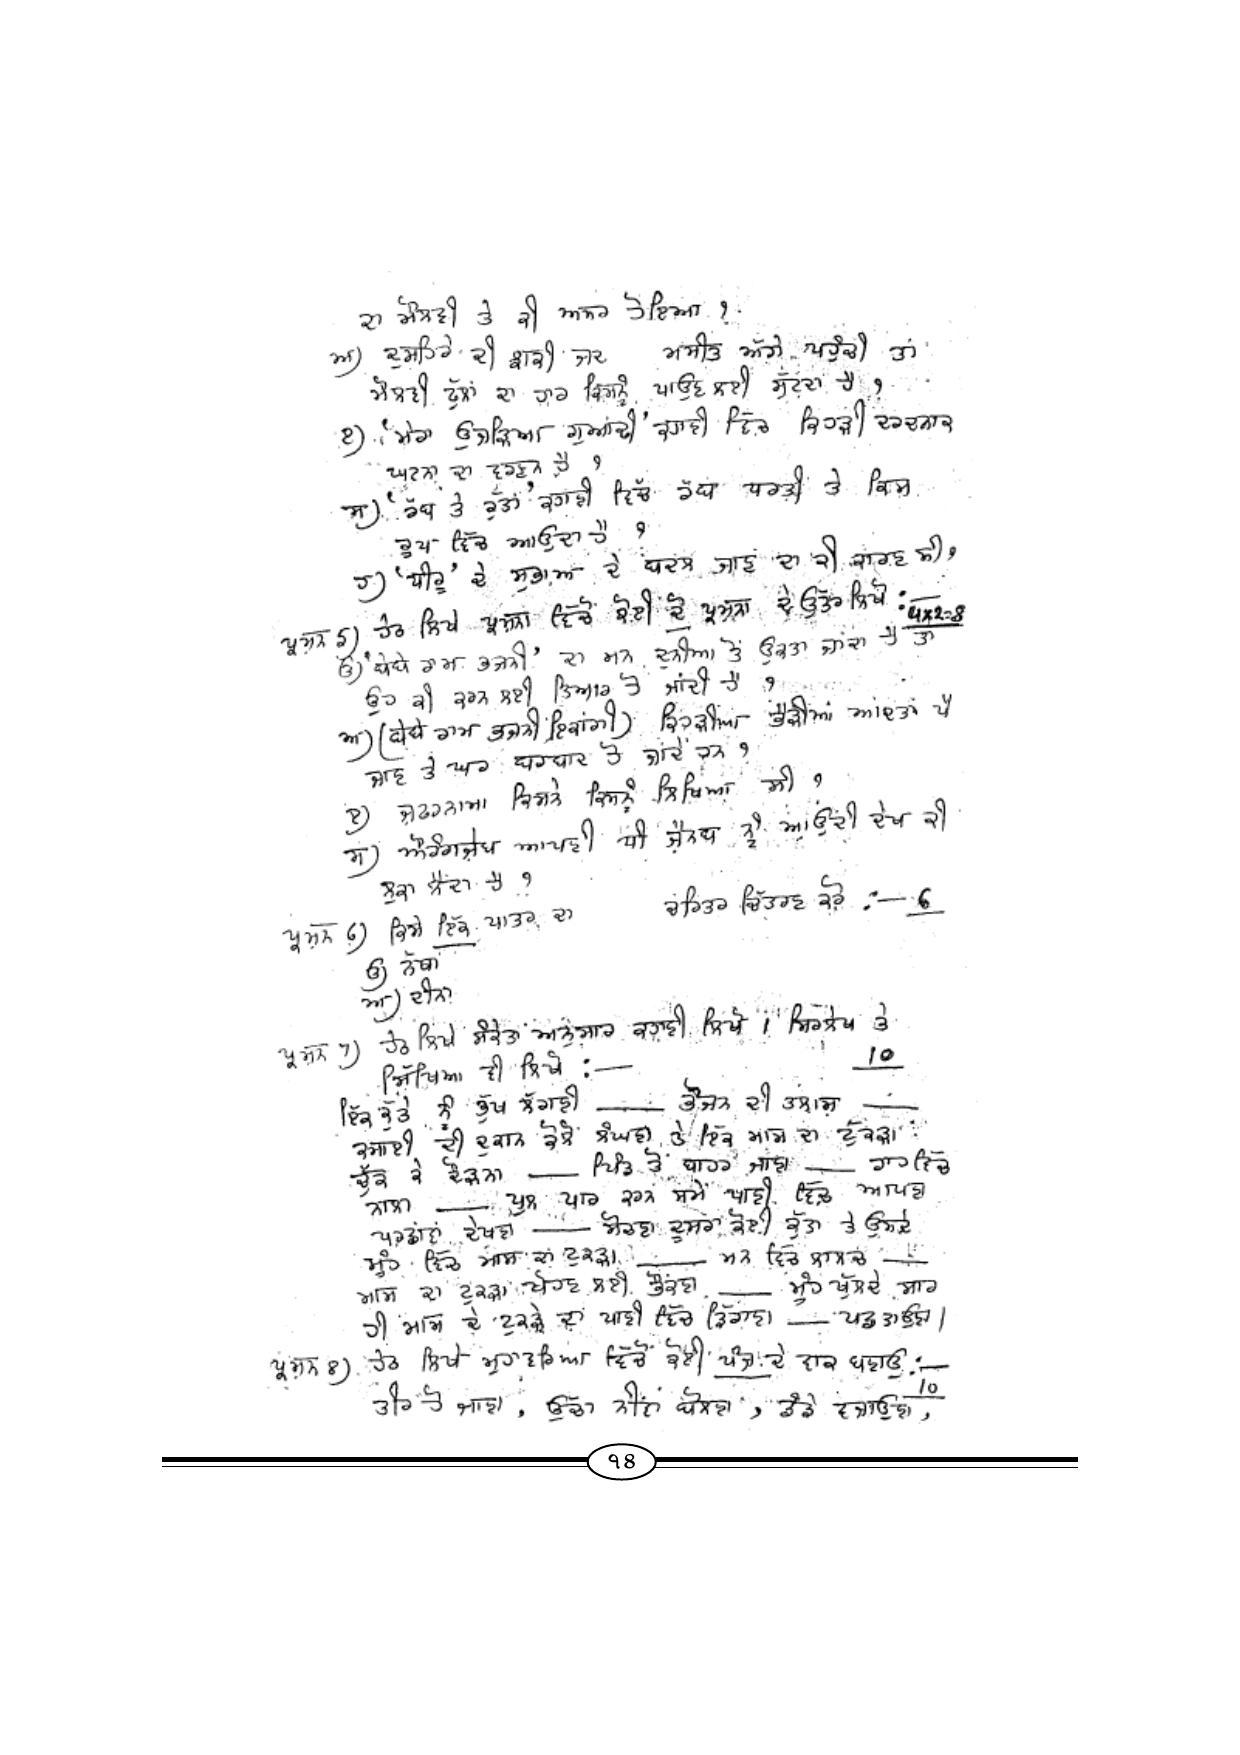 ਦਾ ਮੌਲਵੀ ਤੇ ਕੀ ਅਸਰ ਹੋਇਆ ?
ਅ) ਦੁਸਹਿਰੇ ਦੀ ਝਾਕੀ ਜਦ ਮਸੀਤ ਅੱਗੇ ਪਹੁੰਚੀ ਤਾਂ
ਮੌਲਵੀ ਫੁੱਲਾਂ ਦਾ ਹਾਰ ਕਿਸਨੂੰ ਪਾਉਣ ਲਈ ਸੁੱਟਦਾ ਹੈ ?
ੲ) 'ਮੇਰਾ ਉਜੜਿਆ ਗੁਆਂਢੀ' ਕਹਾਣੀ ਵਿੱਚ ਕਿਹੜੀ ਦਰਦਨਾਕ
ਘਟਨਾ ਦਾ ਵਰਣਨ ਹੈ ?
ਸ) 'ਰੱਬ ਤੇ ਰੁੱਤਾਂ' ਕਹਾਣੀ ਵਿੱਚ ਰੱਬ ਧਰਤੀ ਤੇ ਕਿਸ
ਰੂਪ ਵਿੱਚ ਆਉਂਦਾ ਹੈ ?
ਹ) 'ਧੀਰੂ' ਦੇ ਸੁਭਾਅ ਦੇ ਬਦਲ ਜਾਣ ਦਾ ਕੀ ਕਾਰਣ ਸੀ ?
ਪ੍ਰਸ਼ਨ 5) ਹੇਠ ਲਿਖੇ ਪ੍ਰਸ਼ਨਾਂ ਵਿੱਚੋਂ ਕੋਈ ਦੋ ਪ੍ਰਸ਼ਨਾਂ ਦੇ ਉੱਤਰ ਲਿਖੋ : 4x2=8
ੳ) 'ਬੇਬੇ ਰਾਮ ਭਜਨੀ' ਦਾ ਮਨ ਦੁਨੀਆ ਤੋਂ ਉਕਤਾ ਜਾਂਦਾ ਹੈ ਤਾਂ
ਉਹ ਕੀ ਕਰਨ ਲਈ ਤਿਆਰ ਹੋ ਜਾਂਦੀ ਹੈ ?
ਅ) (ਬੇਬੇ ਰਾਮ ਭਜਨੀ ਇਕਾਂਗੀ) ਕਿਹੜੀਆਂ ਭੈੜੀਆਂ ਆਦਤਾਂ ਪੈ
ਜਾਣ ਤੇ ਘਰ ਬਰਬਾਦ ਹੋ ਜਾਂਦੇ ਹਨ ?
ੲ) ਜ਼ਫ਼ਰਨਾਮਾ ਕਿਸਨੇ ਕਿਸਨੂੰ ਲਿਖਿਆ ਸੀ ?
ਸ) ਔਰੰਗਜ਼ੇਬ ਆਪਣੀ ਧੀ ਜ਼ੈਨਬ ਨੂੰ ਆਉਂਦੀ ਦੇਖ ਕੀ
ਲੁਕਾ ਲੈਂਦਾ ਹੈ ?
ਪ੍ਰਸ਼ਨ 6) ਕਿਸੇ ਇੱਕ ਪਾਤਰ ਦਾ ਚਰਿਤਰ ਚਿੱਤਰਣ ਕਰੋ :— 6
ੳ) ਨੱਥਾ
ਅ) ਦੀਨਾ
ਪ੍ਰਸ਼ਨ 7) ਹੇਠ ਲਿਖੇ ਸੰਕੇਤਾਂ ਅਨੁਸਾਰ ਕਹਾਣੀ ਲਿਖੋ । ਸਿਰਲੇਖ ਤੇ
ਸਿੱਖਿਆ ਵੀ ਲਿਖੋ :— 10
ਇੱਕ ਕੁੱਤੇ ਨੂੰ ਭੁੱਖ ਲੱਗਣੀ —— ਭੋਜਨ ਦੀ ਤਲਾਸ਼ ——
ਕਸਾਈ ਦੀ ਦੁਕਾਨ ਕੋਲੋਂ ਲੰਘਣਾ ਤੇ ਇੱਕ ਮਾਸ ਦਾ ਟੁੱਕੜਾ
ਚੁੱਕ ਕੇ ਦੌੜਨਾ —— ਪਿੰਡ ਤੋਂ ਬਾਹਰ ਜਾਣਾ —— ਰਾਹ ਵਿੱਚ
ਨਾਲਾ —— ਪੁਲ ਪਾਰ ਕਰਨ ਸਮੇਂ ਪਾਣੀ ਵਿੱਚ ਆਪਣਾ
ਪਰਛਾਂਵਾਂ ਦੇਖਣਾ —— ਸੋਚਣਾ ਦੂਸਰਾ ਕੋਈ ਕੁੱਤਾ ਤੇ ਉਸਦੇ
ਮੂੰਹ ਵਿੱਚ ਮਾਸ ਦਾ ਟੁਕੜਾ —— ਮਨ ਵਿੱਚ ਲਾਲਚ ——
ਮਾਸ ਦਾ ਟੁਕੜਾ ਖੋਹਣ ਲਈ ਭੌਂਕਣਾ —— ਮੂੰਹ ਖੁੱਲਦੇ ਸਾਰ
ਹੀ ਮਾਸ ਦੇ ਟੁਕੜੇ ਦਾ ਪਾਣੀ ਵਿੱਚ ਡਿੱਗਣਾ —— ਪਛਤਾਉਣਾ ।
ਪ੍ਰਸ਼ਨ 8) ਹੇਠ ਲਿਖੇ ਮੁਹਾਵਰਿਆਂ ਵਿੱਚੋਂ ਕੋਈ ਪੰਜ ਦੇ ਵਾਕ ਬਣਾਉ :— 10
ਤੀਰ ਹੋ ਜਾਣਾ , ਉੱਚਾ ਨੀਵਾਂ ਬੋਲਣਾ , ਡੰਡੇ ਵਜਾਉਣਾ ,
੧੪